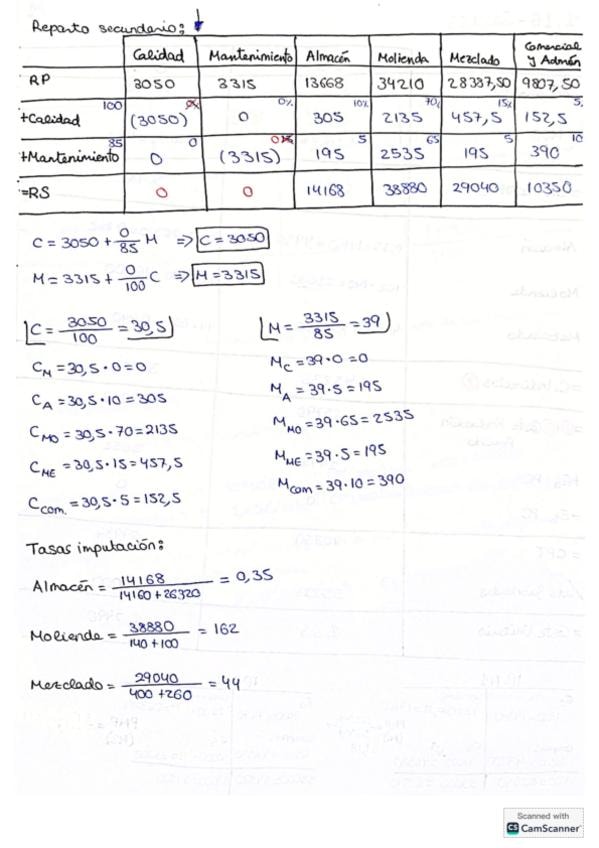 Reparto secundario:
Calidad Mantenimiento Almacén Molienda Mezclado Comercial y Admón
RP 3050 3315 13668 34210 28387,50 9807,50
100 0% 0% 10% 70% 15% 5%
+Calidad (3050) 0 305 2135 457,5 152,5
85 0 0% 5 65 5 10
+Mantenimiento 0 (3315) 195 2535 195 390
=RS 0 0 14168 38880 29040 10350
C = 3050 + 0/85 M => C = 3050
M = 3315 + 0/100 C => M = 3315
C = 3050/100 = 30,5
M = 3315/85 = 39
C_M = 30,5 · 0 = 0
C_A = 30,5 · 10 = 305
C_MO = 30,5 · 70 = 2135
C_ME = 30,5 · 15 = 457,5
C_com. = 30,5 · 5 = 152,5
M_C = 39 · 0 = 0
M_A = 39 · 5 = 195
M_MO = 39 · 65 = 2535
M_ME = 39 · 5 = 195
M_com = 39 · 10 = 390
Tasas imputación:
Almacén = 14168/14160+26320 = 0,35
Molienda = 38880/140+100 = 162
Mezclado = 29040/400+260 = 44
Scanned with
CS CamScanner